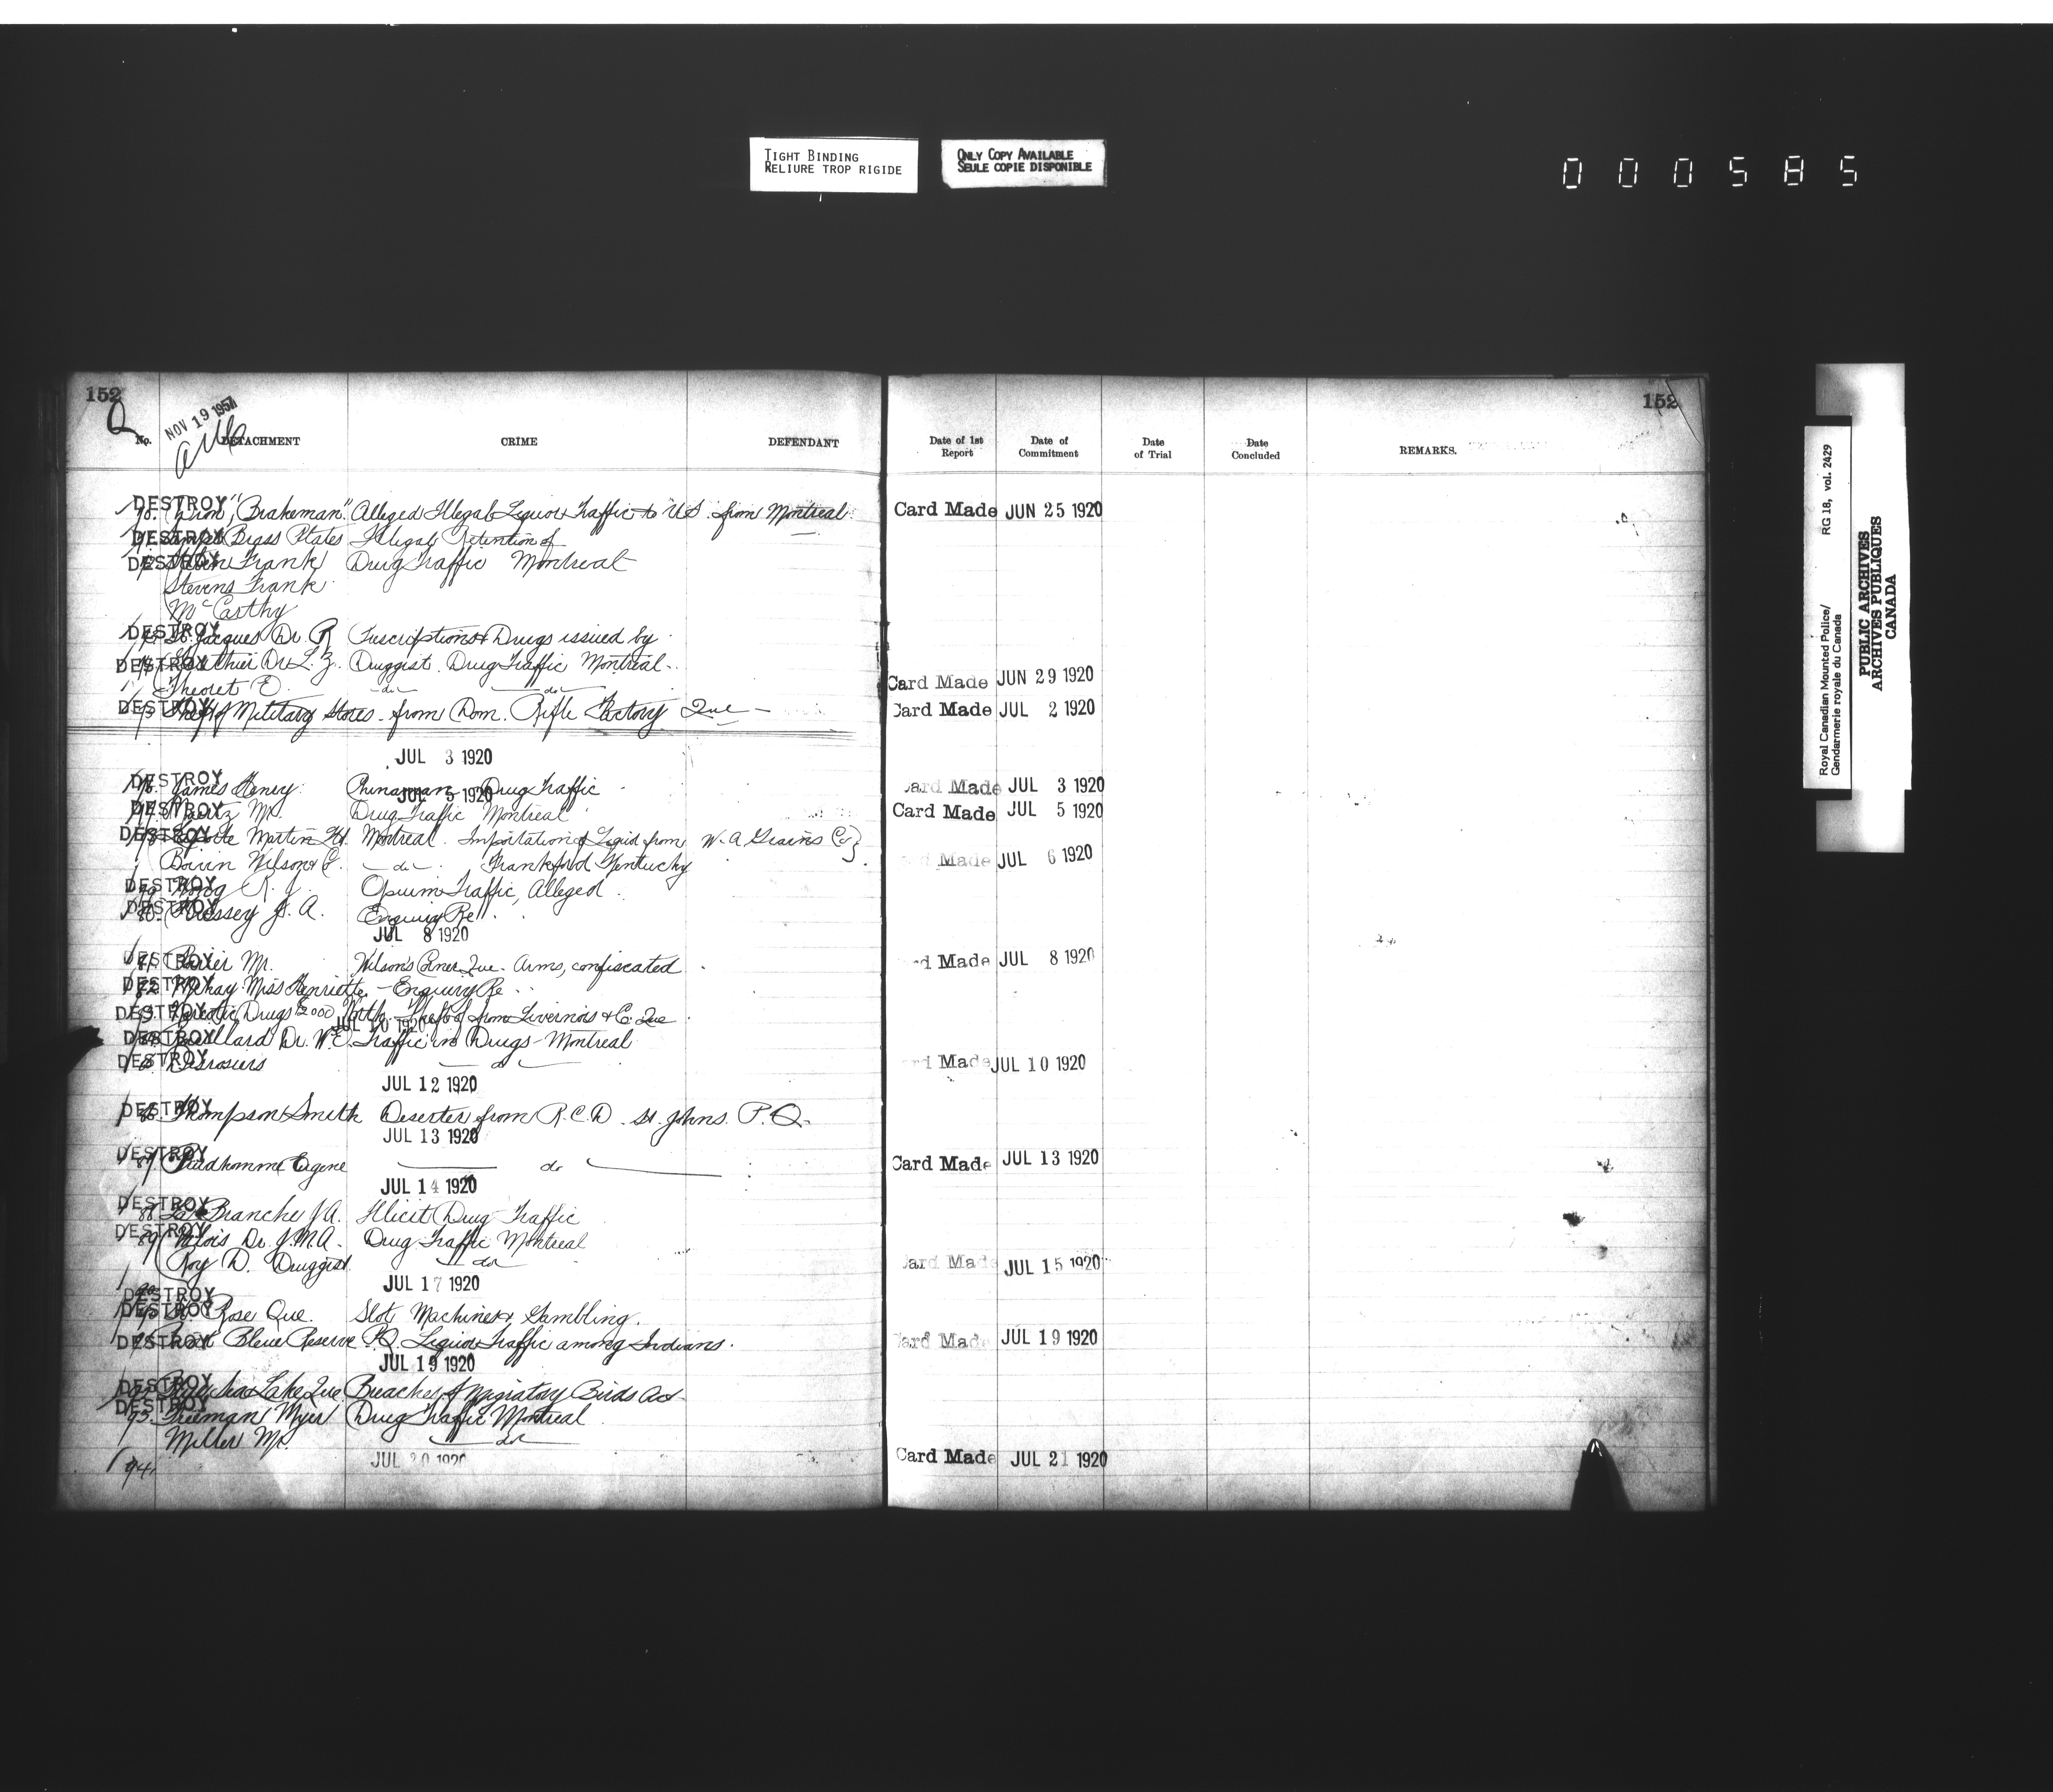 TIGHT BINDING
RELIURE TROP RIGIDE
ONLY COPY AVAILABLE
SEULE COPIE DISPONIBLE
000585
152
Q
NOV 19 1957
No. DETACHMENT CRIME DEFENDANT
DESTROY
"Brakeman" Alleged Illegal Liquor Traffic to U.S. from Montreal
DESTROY
Brass Plates Illegal Retention of
DESTROY
Frank Drug Traffic Montreal
Stevens Frank
McCarthy
DESTROY
St. Jacques Dr. R. Drugs issued by
DESTROY
Dr. L. Z. Druggist. Drug Traffic Montreal.
Theoret E. do do
DESTROY
Theft of Military Stores from Dom. Rifle Factory Que
JUL 3 1920
DESTROY
James Henry. Chinaman Drug Traffic
JUL 5 1920
DESTROY
Mr. Drug Traffic Montreal
DESTROY
Martin Montreal. Importation of Liquor from W. A. Grains Co }
Boivin Wilson & C. do Frankford Kentucky
DESTROY
R. J. Opium Traffic, Alleged
DESTROY
80. J. A. Enquiry Re
JUL 8 1920
DESTROY
81. Mr. Wilson's Corner Que. Arms, confiscated
DESTROY
82. Miss Henriette - Enquiry Re
DESTROY
Narcotic Drugs $2000 Worth. Theft of from Livernois & C. Que
JUL 10 1920
DESTROY
Dr. W. E. Traffic in Drugs - Montreal
DESTROY
Desrosiers do
JUL 12 1920
DESTROY
86. Thompson Smith Deserter from R.C.D. St. Johns. P.Q.
JUL 13 1920
DESTROY
87. Prudhomme Eugene do
JUL 14 1920
DESTROY
88. La Branche J.A. Illicit Drug Traffic
DESTROY
89. Valois Dr. J.M.A. Drug Traffic Montreal
Roy D. Druggist. do
JUL 17 1920
90.
DESTROY
DESTROY
St. Rose Que. Slot Machines & Gambling.
DESTROY
Bleue Reserve P.Q. Liquor Traffic among Indians.
JUL 19 1920
DESTROY
Lake Que Breaches of Migratory Birds Act
DESTROY
93. Freeman Myer Drug Traffic Montreal
Miller Mr. do
94.
JUL 20 1920
152
Date of 1st Report
Date of Commitment
Date of Trial
Date Concluded
REMARKS.
Card Made JUN 25 1920
Card Made JUN 29 1920
Card Made JUL 2 1920
Card Made JUL 3 1920
Card Made JUL 5 1920
Made JUL 6 1920
Made JUL 8 1920
Made JUL 10 1920
Card Made JUL 13 1920
Card Made JUL 15 1920
Card Made JUL 19 1920
Card Made JUL 21 1920
Royal Canadian Mounted Police/
Gendarmerie royale du Canada
RG 18, vol. 2429
PUBLIC ARCHIVES
ARCHIVES PUBLIQUES
CANADA